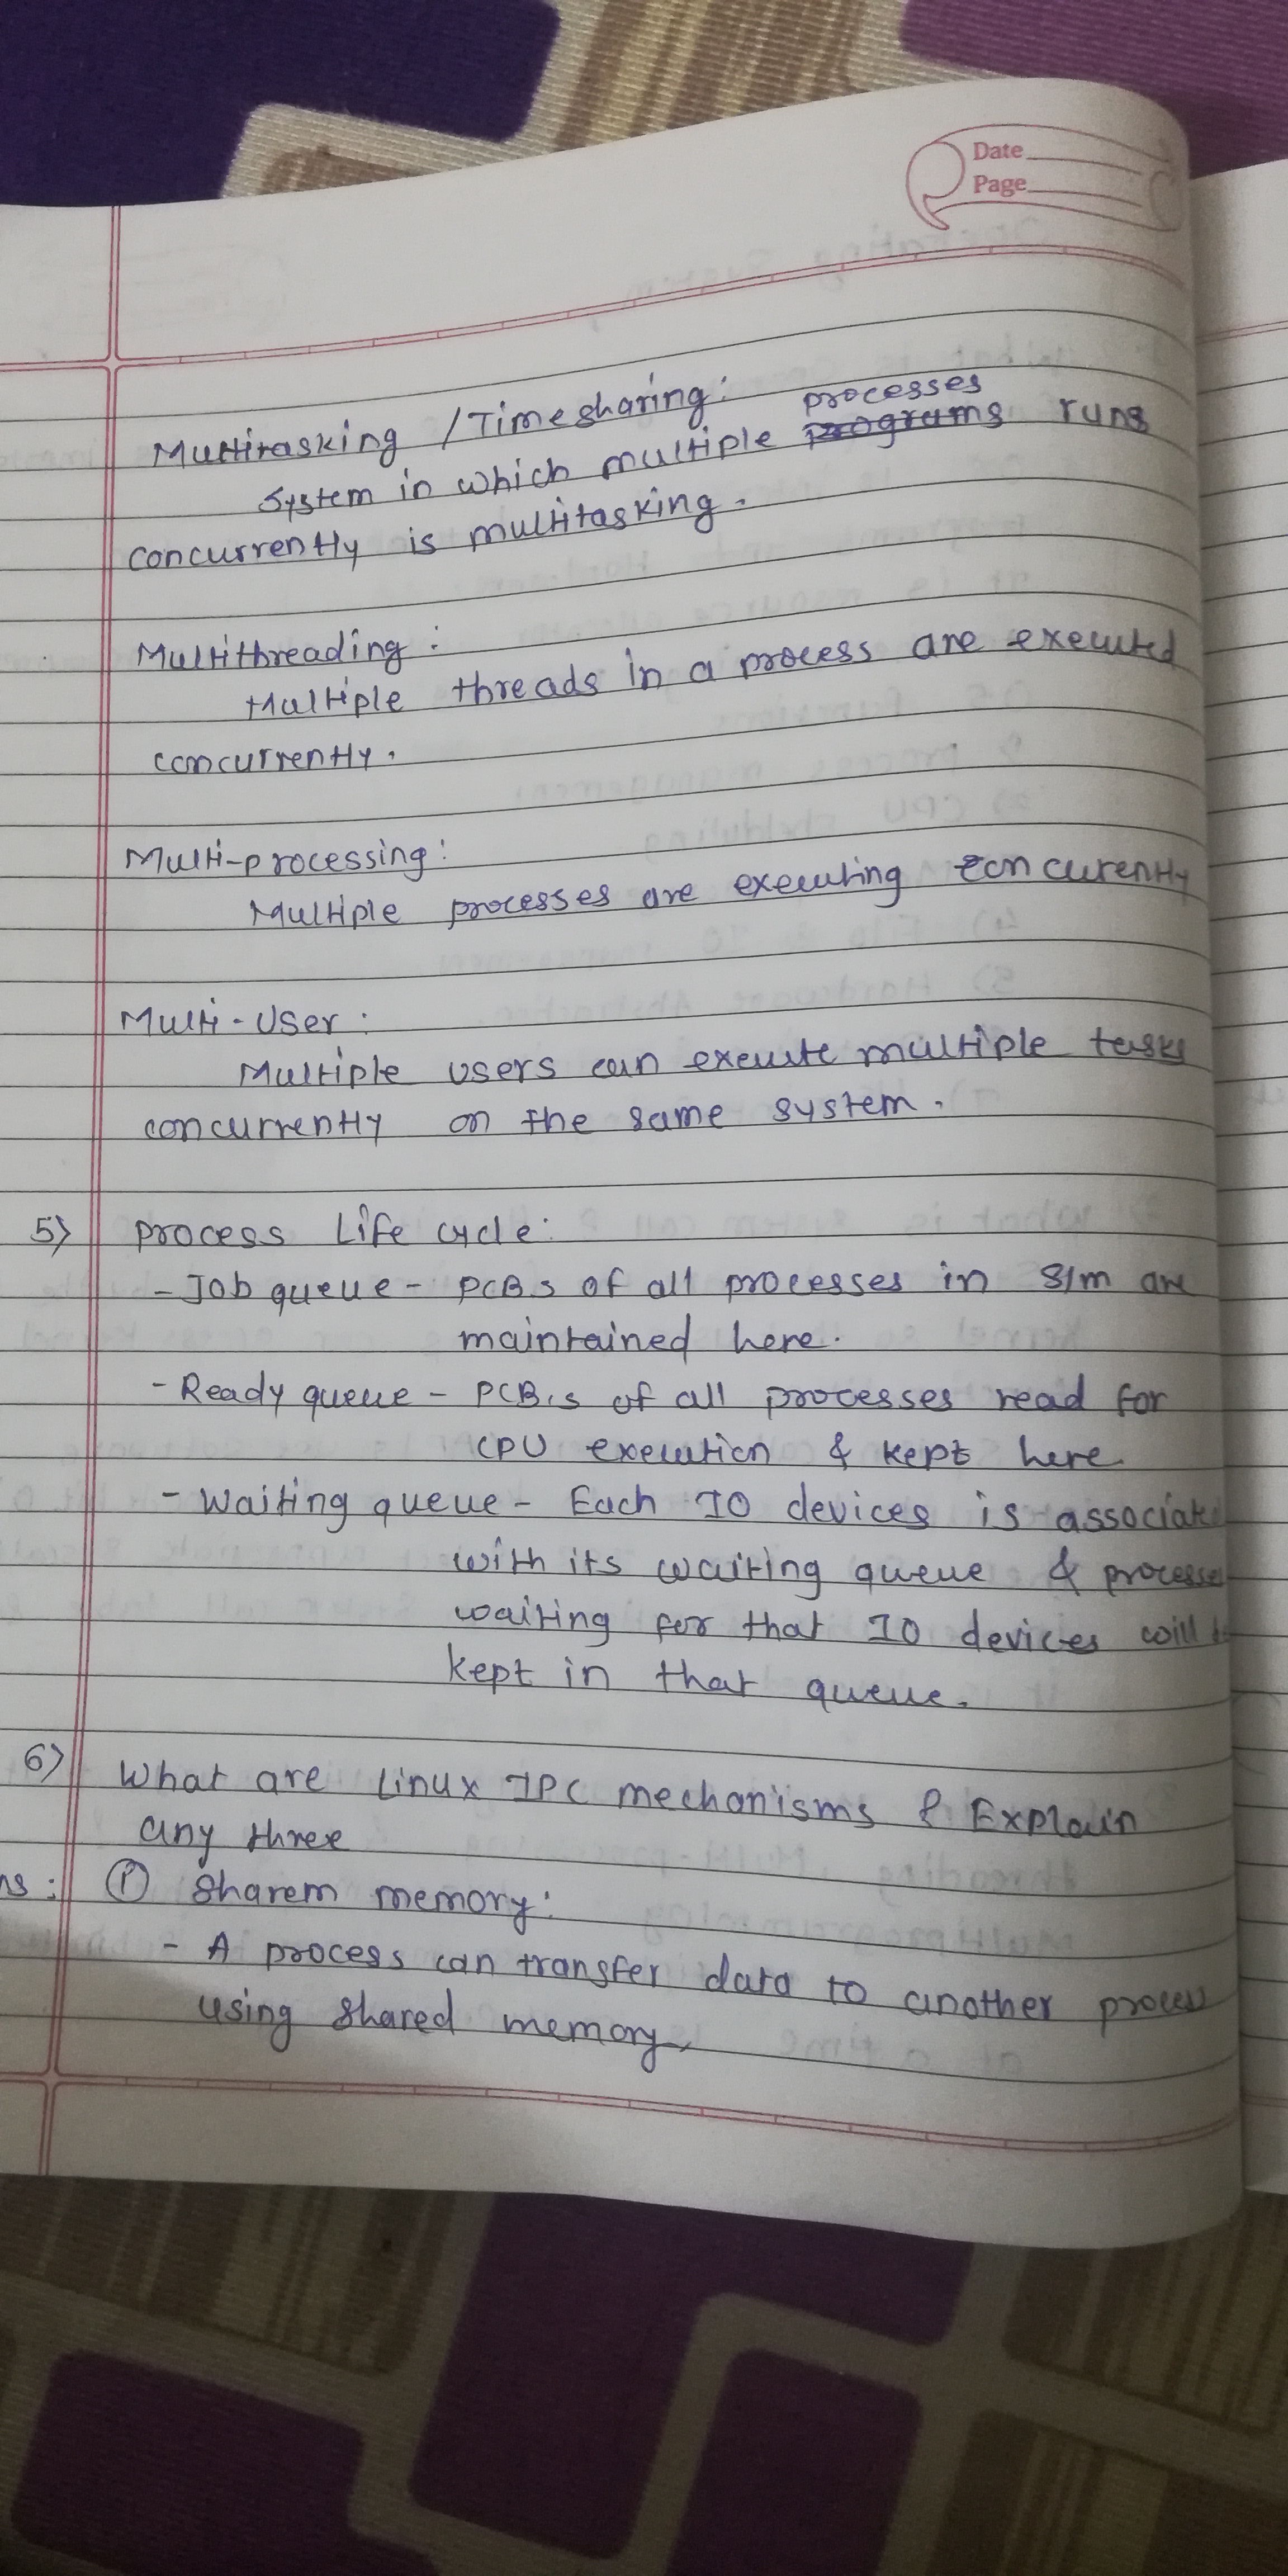 Date
Page
Multitasking / Timesharing:
processes
System in which multiple programs runs
concurrently is multitasking.
Multithreading:
Multiple threads in a process are executed
concurrently.
Multi-processing:
Multiple processes are executing concurently
Multi-User:
Multiple users can execute multiple tasks
concurrently on the same system.
5) Process Life cycle:
- Job queue - PCBs of all processes in s/m are
maintained here.
- Ready queue - PCB,s of all processes read for
CPU execution & kept here
- Waiting queue - Each IO devices is associate
with its waiting queue & processe
waiting for that IO devices will b
kept in that queue.
6) What are Linux IPC mechanisms ? Explain
any three
ns: ① Sharem memory:
- A process can transfer data to another process
using shared memory,